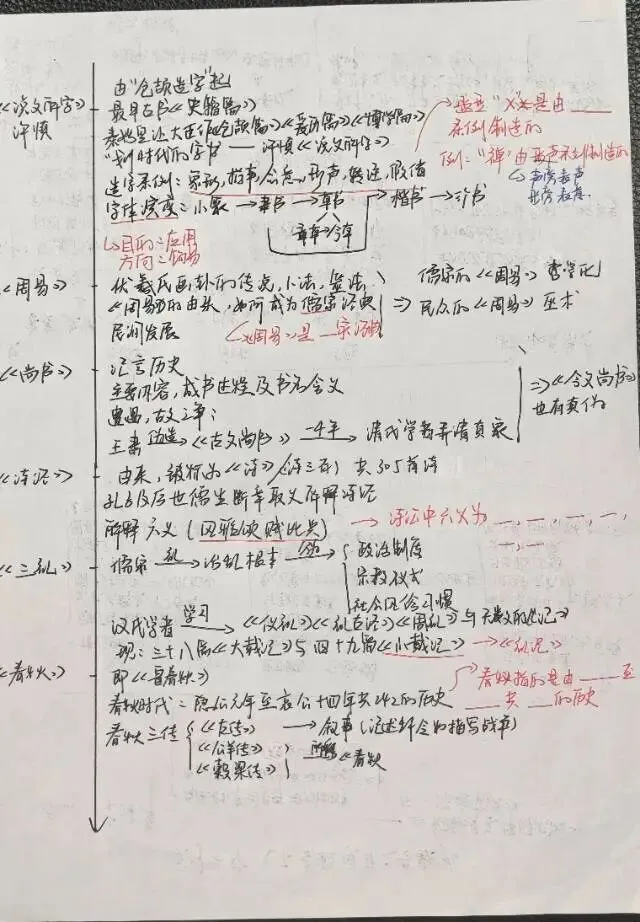 由"仓颉造字"起
《说文解字》
许慎
最早古书《史籀篇》
秦始皇让大臣作《仓颉篇》《爰历篇》《博学篇》
"划时代的字书"——许慎《说文解字》
造字条例：象形，指事，会意，形声，转注，假借
字体演变：小篆→隶书→草书→楷书→行书
章草→今草
↳目的：应用
方向：简易
"X"是由____
条例制造的
例："禅"由形声条例制造的
声旁表声
形旁表意
《周易》
伏羲氏画卦的传说，卜法，筮法
《周易》的由来，如何成为儒家经典
民间发展
《周易》是__家经典
⇒
儒家的《周易》哲学化
民众的《周易》巫术
《尚书》
记言历史
主要内容，成书过程及书名含义
曲，古文之争：
王肃伪造《古文尚书》一千年→清代学者弄清真象
⇒《今文尚书》
也有真伪
《诗经》
由来，被称为《诗》/《诗三百》共305首诗
孔子及后世儒生断章取义解释诗经
解释六义（风雅颂赋比兴）
→诗经中六义为__，__，__，__，
__，__
《三礼》
儒家 礼→治乱根本 包含→
政治制度
宗教仪式
社会风俗习惯
汉代学者 学习→《仪礼》《礼古经》《周礼》与天数文的《记》
现：三十八篇《大戴记》与四十九篇《小戴记》→《礼记》
《春秋》
即《鲁春秋》
春秋时代：隐公元年至哀公十四年共242的历史
春秋指的是由____至
____共__的历史
春秋三传
《左传》→叙事（记述辞令和描写战争）
《公羊传》
《榖梁传》
→解释《春秋